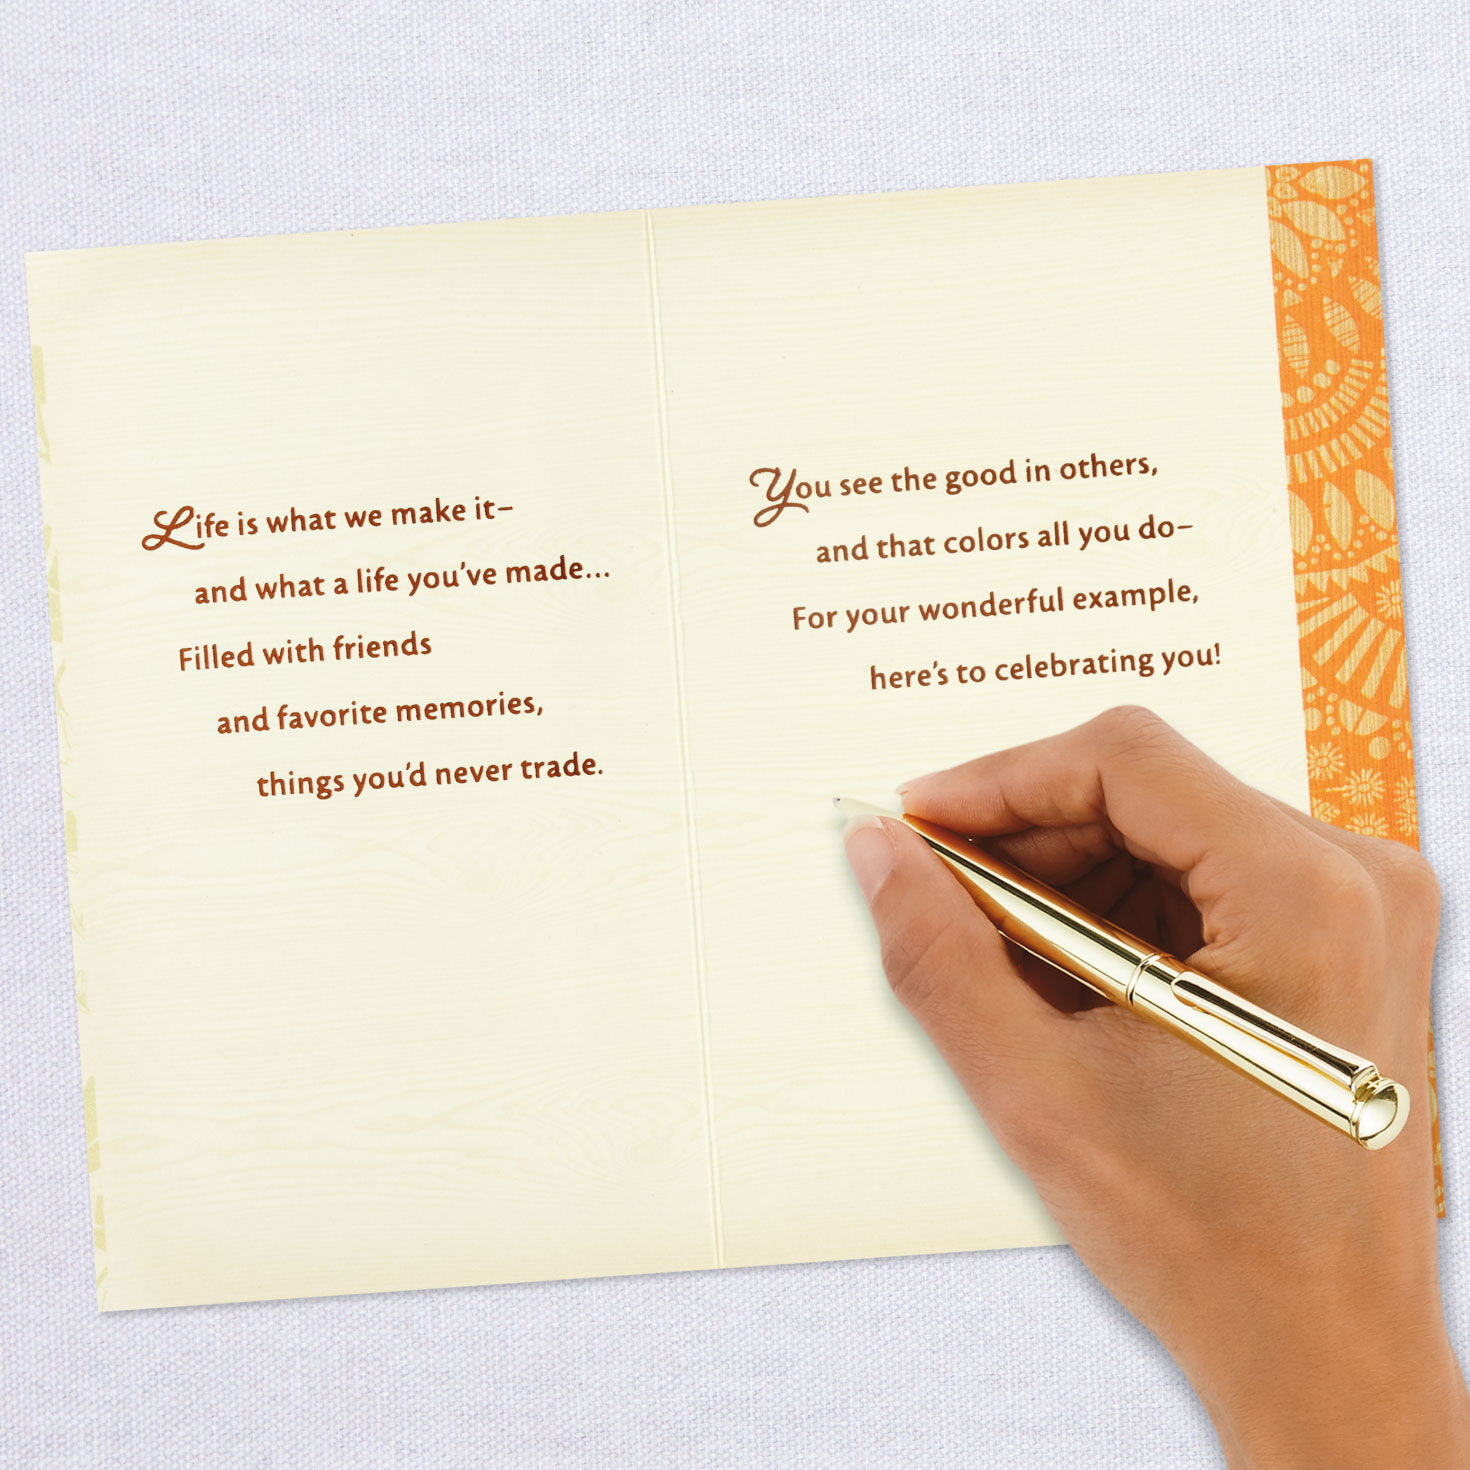 Life is what we make it–
and what a life you've made...
Filled with friends
and favorite memories,
things you'd never trade.
You see the good in others,
and that colors all you do–
For your wonderful example,
here's to celebrating you!